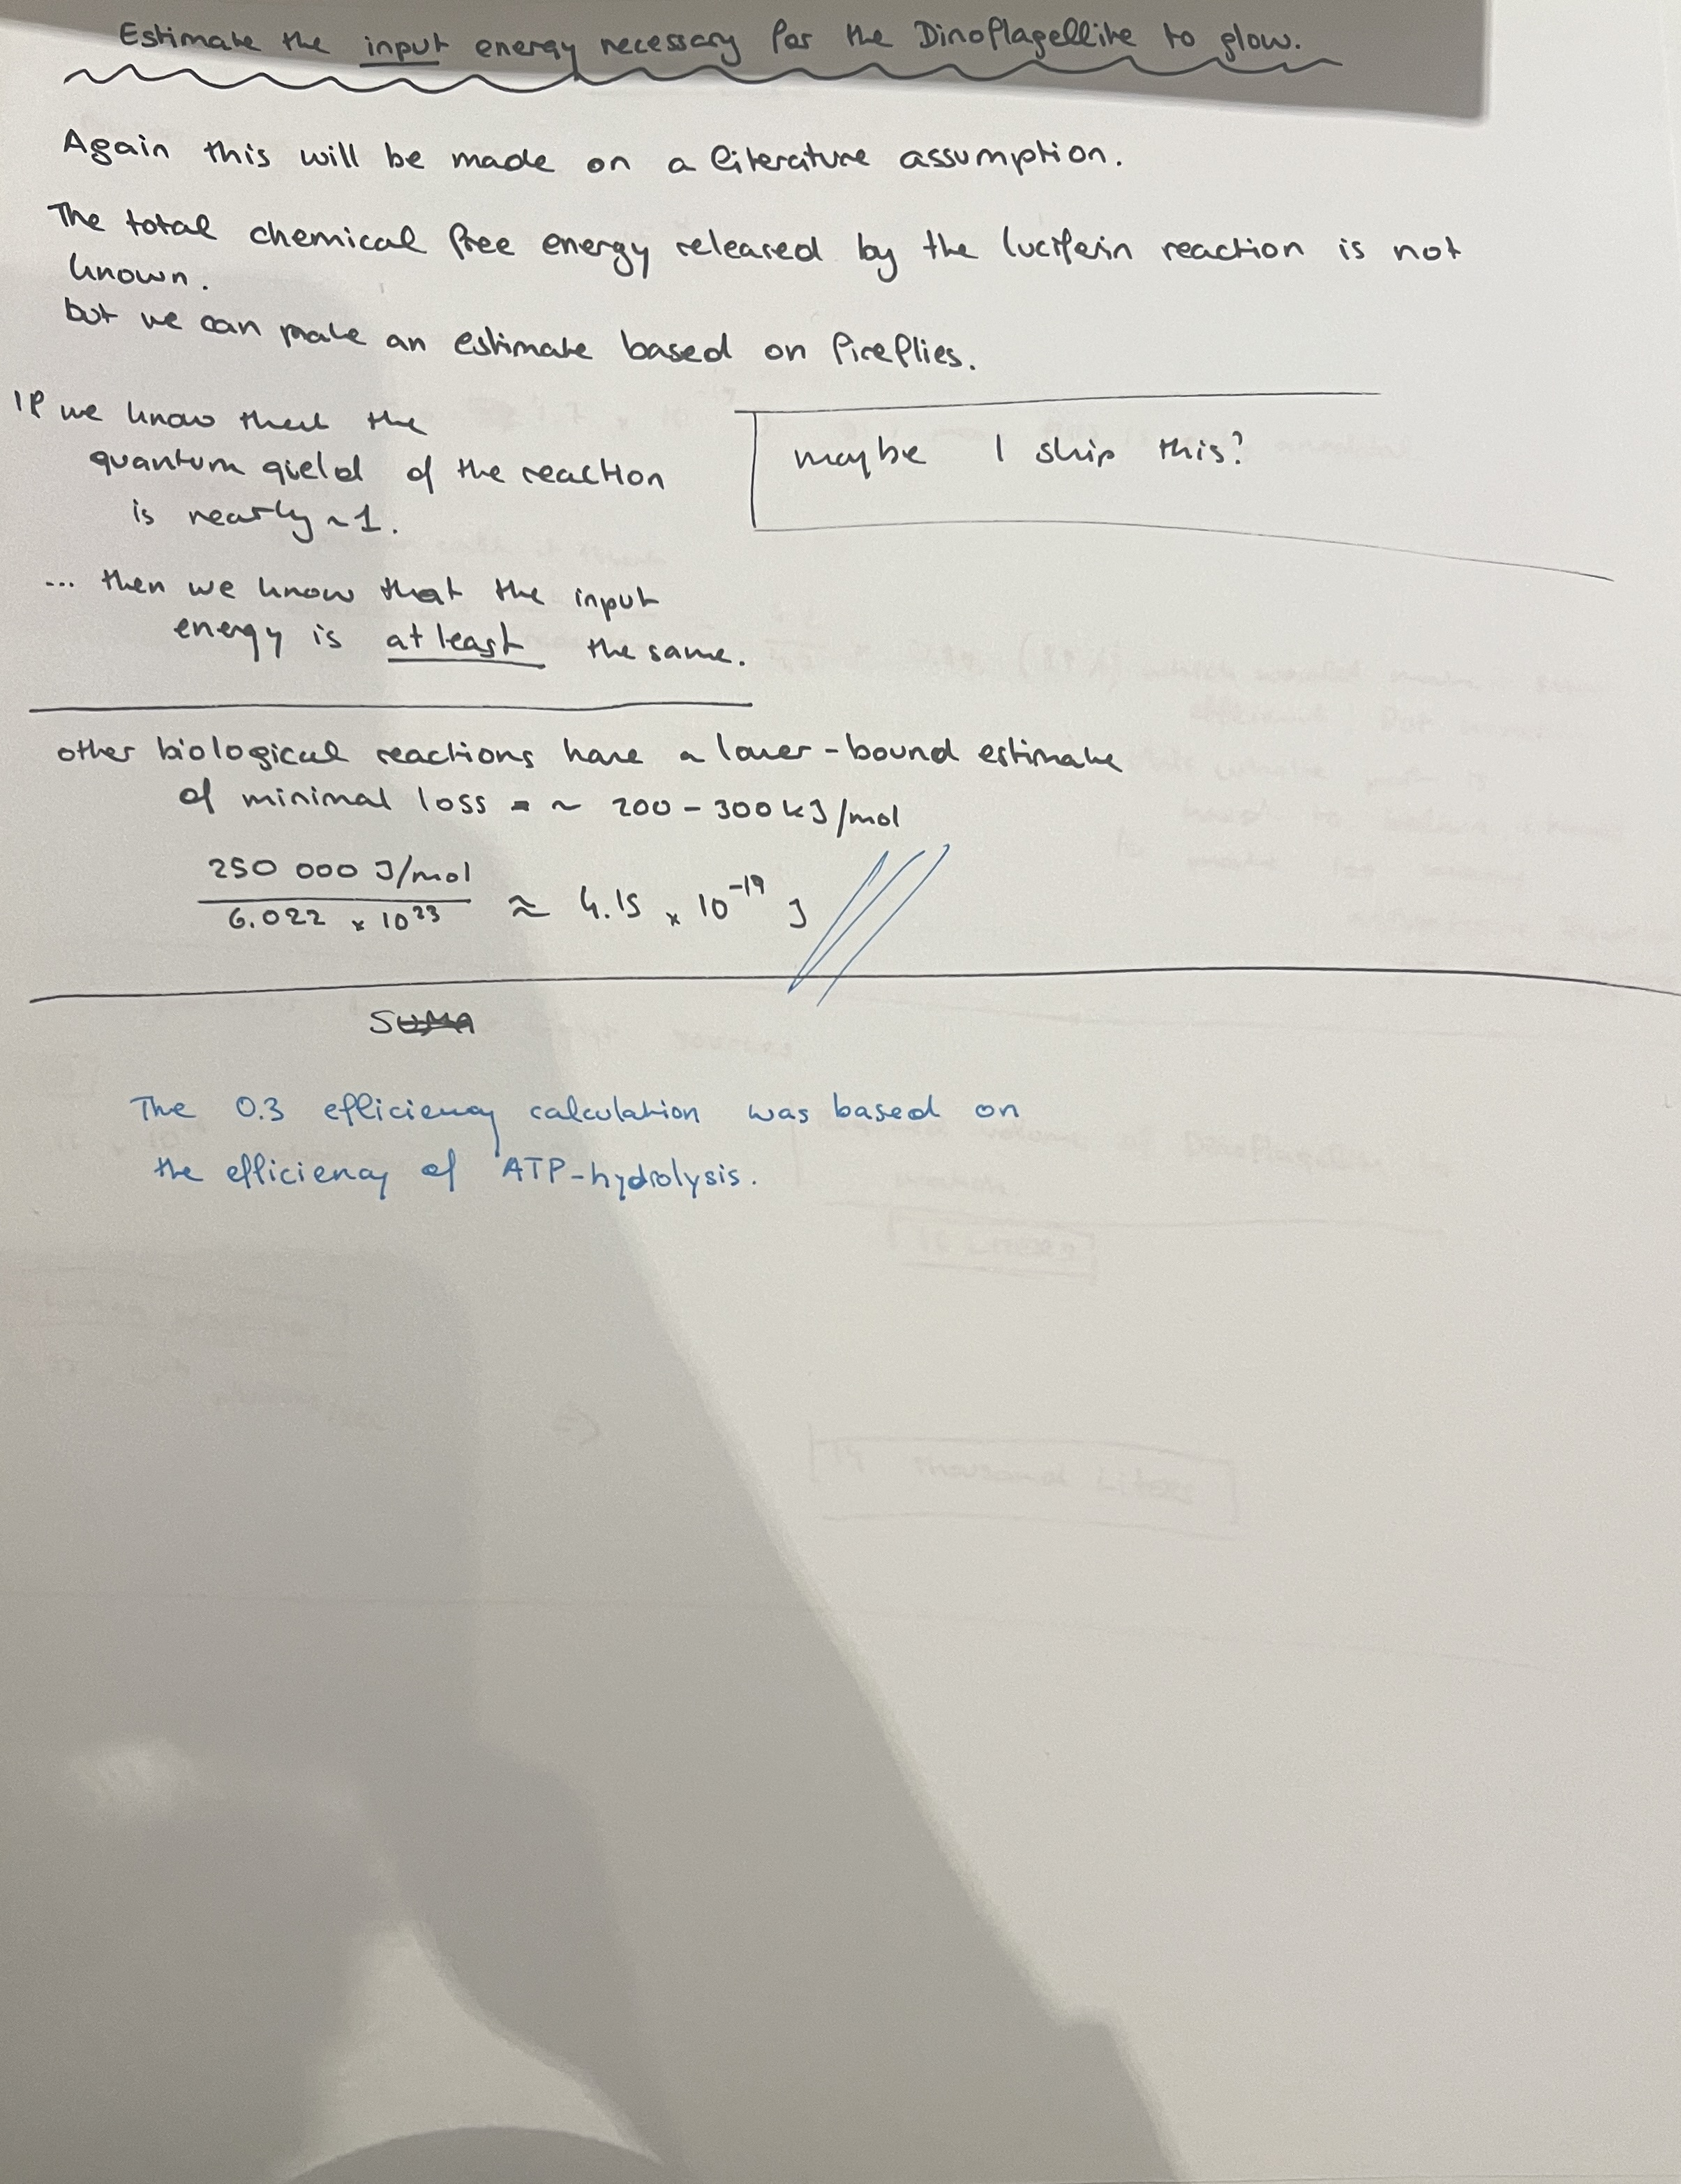 Estimate the input energy necessary for the Dinoflagellite to glow.
Again this will be made on a literature assumption.
The total chemical free energy released by the luciferin reaction is not
known.
but we can make an estimate based on fireflies.
If we know that the
quantum yield of the reaction
is nearly ~1.
maybe I skip this?
... then we know that the input
energy is at least the same.
other biological reactions have a lower-bound estimate
of minimal loss = ~ 200 - 300 kJ/mol
250 000 J/mol
6.022 x 10²³
≈ 4.15 x 10⁻¹⁹ J
The 0.3 efficiency calculation was based on
the efficiency of ATP-hydrolysis.